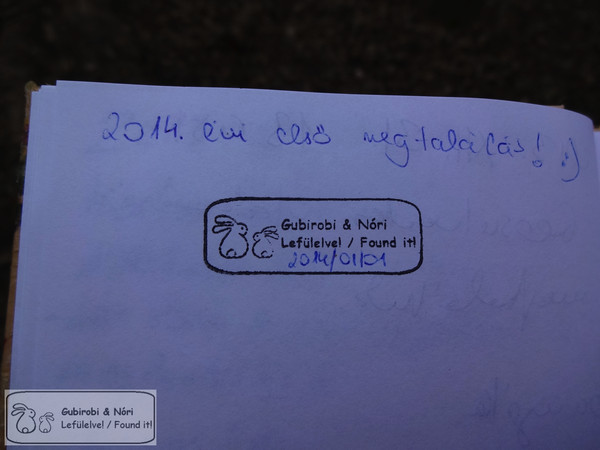 2014. évi első megtalálás! :)
Gubirobi & Nóri
Lefülelve! / Found it!
2014/01/01
Gubirobi & Nóri
Lefülelve! / Found it!